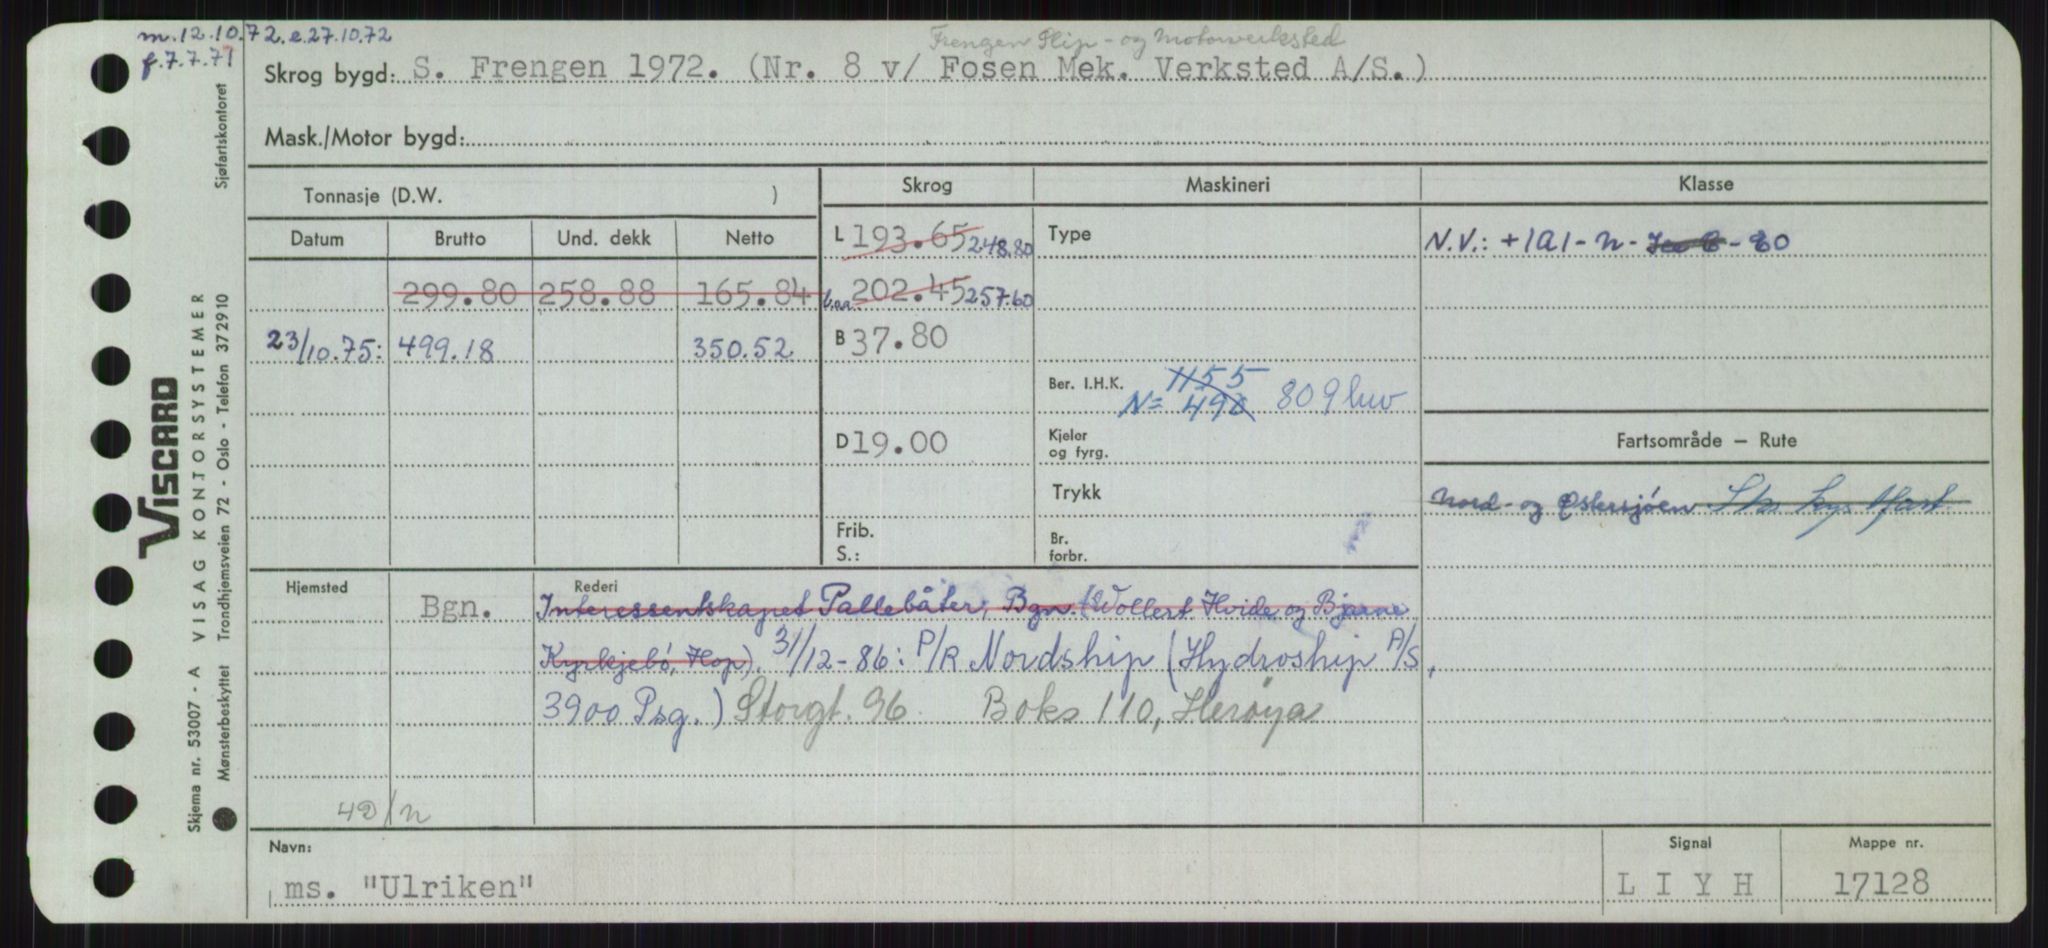 m. 12.10.72. e. 27.10.72
f. 7.7.71
Frengen Slip- og Motorverksted
Skrog bygd: S. Frengen 1972. (Nr. 8 v/ Fosen Mek. Verksted A/S.)
Mask./Motor bygd:
Tonnasje (D.W. )
Skrog
Maskineri
Klasse
Datum Brutto Und. dekk Netto
L 193.65 248.80
Type
N.V.: +1A1-n- - 80
299.80 258.88 165.84
l.o.a. 202.45 257.60
23/10.75: 499.18 350.52
B 37.80
Ber. I.H.K. 1155
N= 490 809 kw
D 19.00
Kjeler
og fyrg.
Fartsområde – Rute
Trykk
Nord- og Østersjøen
Frib.
S.:
Br.
forbr.
Hjemsted
Rederi
Bgn. Interessentskapet Pallebåter, Bgn. (Wollert Hvide og Bjarne
Kyrkjebø, Hop). 31/12-86: P/R Nordship (Hydroship A/S,
3900 Psg.) Storgt. 96 Boks 110, Herøya
4D/n
Navn:
ms. "Ulriken"
Signal
L I Y H
Mappe nr.
17128
Viscard
Skjema nr. 53007 - A VISAG KONTORSYSTEMER
Mønsterbeskyttet Trondhjemsveien 72 - Oslo - Telefon 372910 Sjøfartskontoret